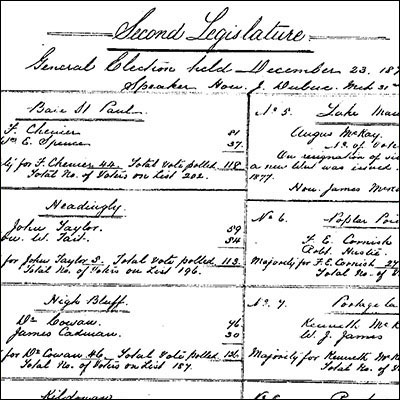 Second Legislature
General Election held December 23. 187
Speaker Hon. J. Dubuc. 31st
Baie St Paul.
F. Chenier 81
Wm E. Spence 37.
ly for F. Chenier 44. Total Vote polled 118
Total No. of Voters on List 202.
Headingly
John Taylor 59
W. Tait 54
for John Taylor 5. Total Vote polled 113
Total No. of Voters on List 196.
High Bluff.
Dr Cowan 76
James Cadman 30
for Dr Cowan 46. Total Vote polled 106
Total No. of Voters on List 187.
Kildonan
No 5. Lake Man
Angus McKay.
No. of Vote
On resignation of
a new Writ was issued
1877.
Hon. James McK
No 6. Poplar Poi
F. E. Cornish
Majority for F. E. Cornish 27
Total No. of V
No. 7. Portage La
Kenneth McK
W. J. James
Majority for Kenneth McK
Total No. of